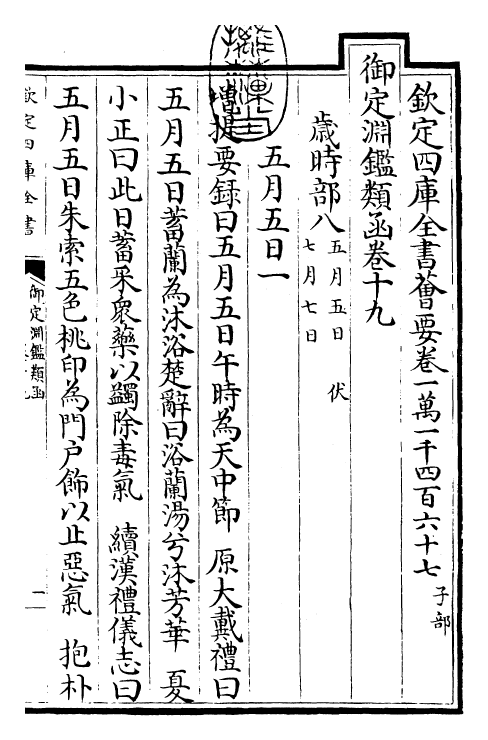 欽定四庫全書薈要卷一萬一千四百六十七 子部
御定淵鑑類函卷十九
歲時部八 五月五日 伏
七月七日
五月五日一
增提要録曰五月五日午時為天中節 原大戴禮曰
五月五日蓄蘭為沐浴楚辭曰浴蘭湯兮沐芳華 夏
小正曰此日蓄采衆藥以蠲除毒氣 續漢禮儀志曰
五月五日朱索五色桃印為門戶飾以止惡氣 抱朴
欽定四庫全書
御定淵鑑類函
一